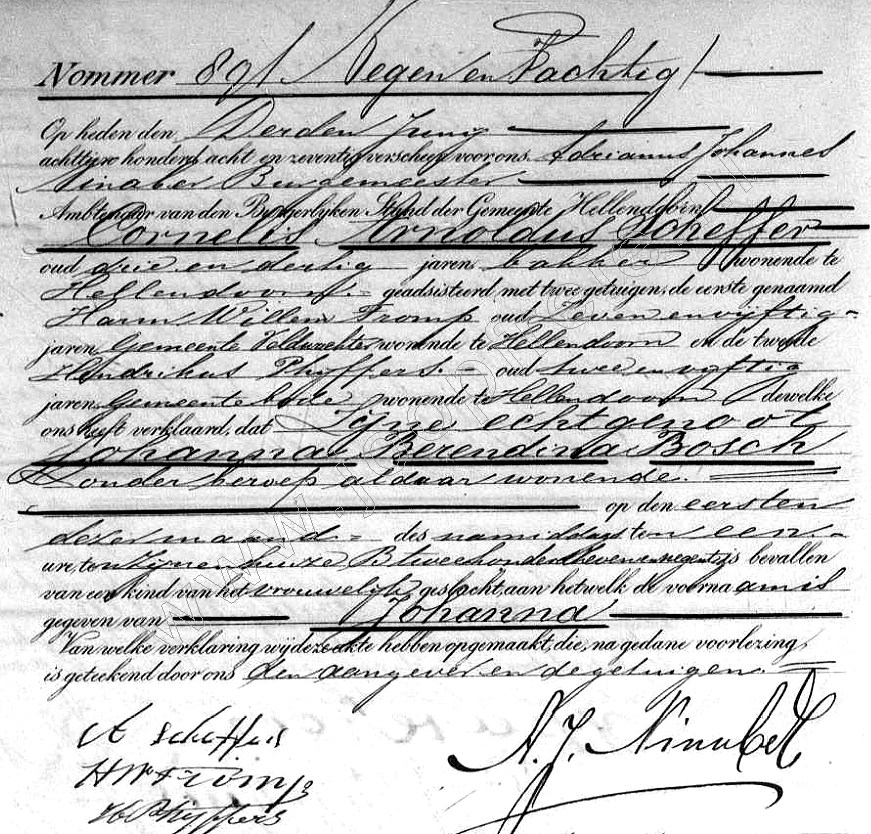 Nommer 89/. Negen en Tachtig /
Op heden den Derden Junij
achttienhonderd acht en zeventig verscheen voor ons, Adrianus Johannes
Ninaber Burgemeester
Ambtenaar van den Burgerlijken Stand der Gemeente Hellendoorn
Cornelis Arnoldus Scheffer
oud drie en dertig jaren, bakker wonende te
Hellendoorn geadsisteerd met twee getuigen, de eerste genaamd
Harm Willem Tromp oud Zeven en vijftig
jaren, Gemeente Veldwachter wonende te Hellendoorn en de tweede
Hendrikus Phyffers oud twee en vyftig
jaren, Gemeentebode wonende te Hellendoorn dewelke
ons heeft verklaard, dat Zyne echtgenoot
Johanna Berendina Bosch
Zonder beroep aldaar wonende.
op den eersten
dezer maand des namiddags ten een
ure, ten zynen huize B tweehonderd zeven en negentig is bevallen
van een kind van het vrouwelijk geslacht, aan hetwelk de voornaam is
gegeven van Johanna
Van welke verklaring wij deze akte hebben opgemaakt, die, na gedane voorlezing,
is geteekend door ons den aangever en de getuigen.
A. J. Ninaber
C A Scheffer
H W Tromp
H Phyffers